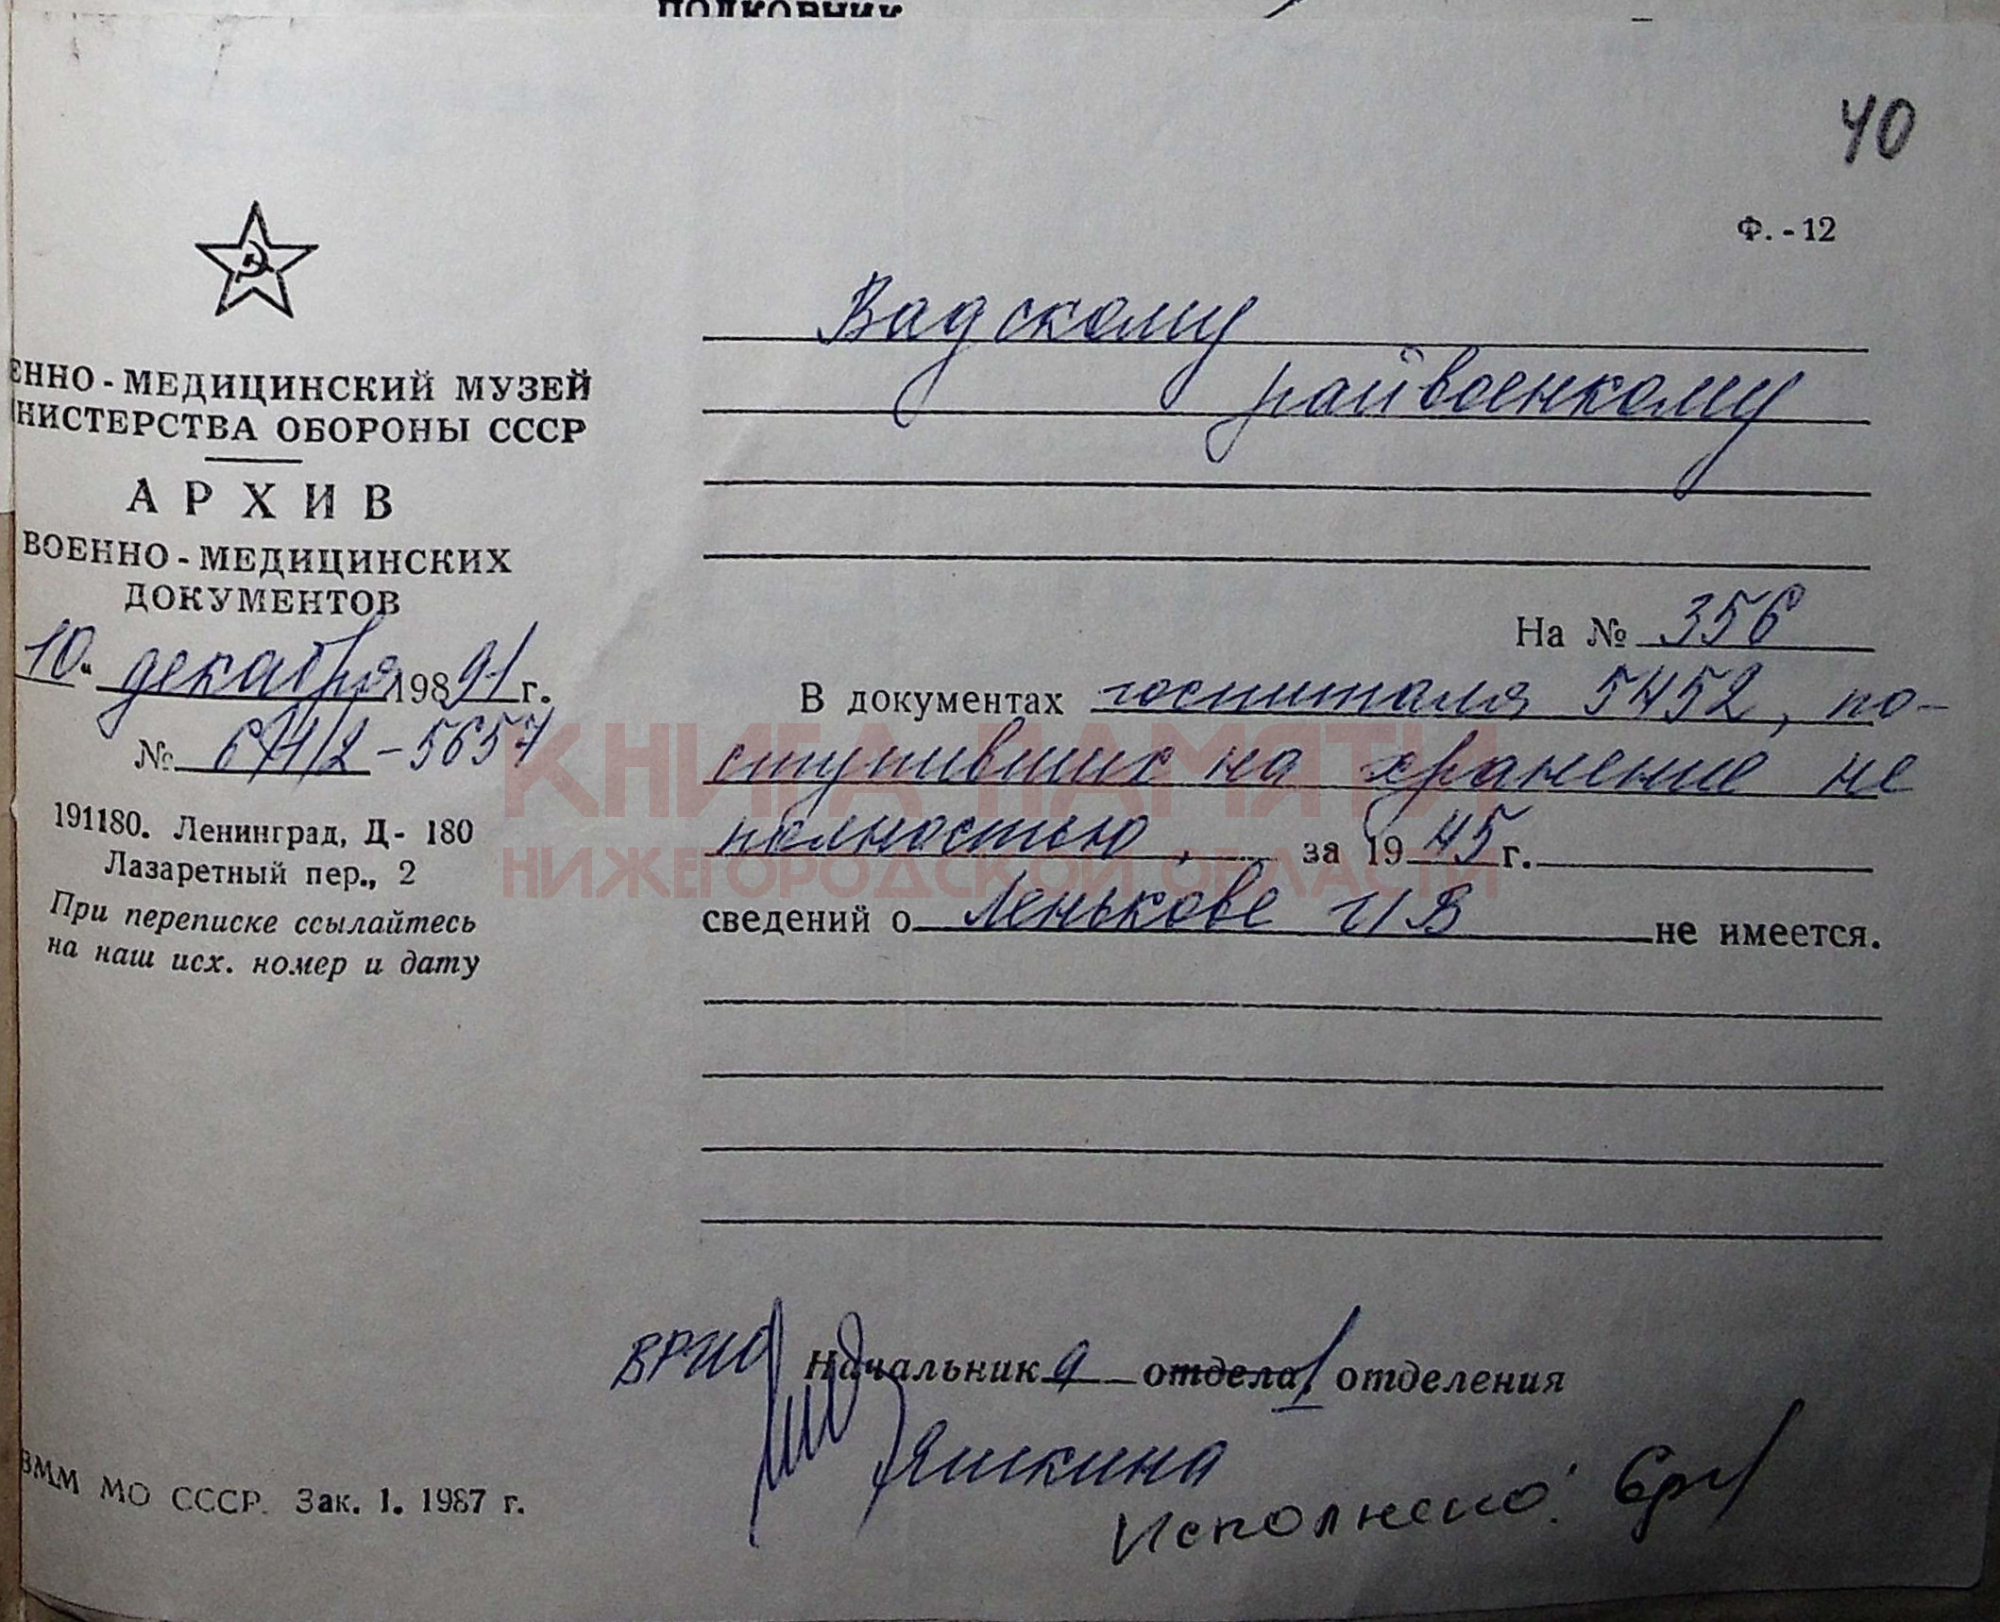 ПОЛКОВНИК
40
Ф. - 12
ЕННО - МЕДИЦИНСКИЙ МУЗЕЙ
НИСТЕРСТВА ОБОРОНЫ СССР
АРХИВ
ВОЕННО - МЕДИЦИНСКИХ
ДОКУМЕНТОВ
10 " декабря 198 91 г.
№ 6/4/2 - 5657
191180. Ленинград, Д - 180
Лазаретный пер., 2
При переписке ссылайтесь
на наш исх. номер и дату
Вадскому
райвоенкому
На № 356
В документах госпиталя 5452, по-
ступивших на хранение не
полностью, за 19 45 г.
сведений о Ленькове И В не имеется.
КНИГА ПАМЯТИ
НИЖЕГОРОДСКОЙ ОБЛАСТИ
ВРИО Начальник а отдела 1 отделения
Исполнено!
ВММ МО СССР. Зак. 1. 1987 г.